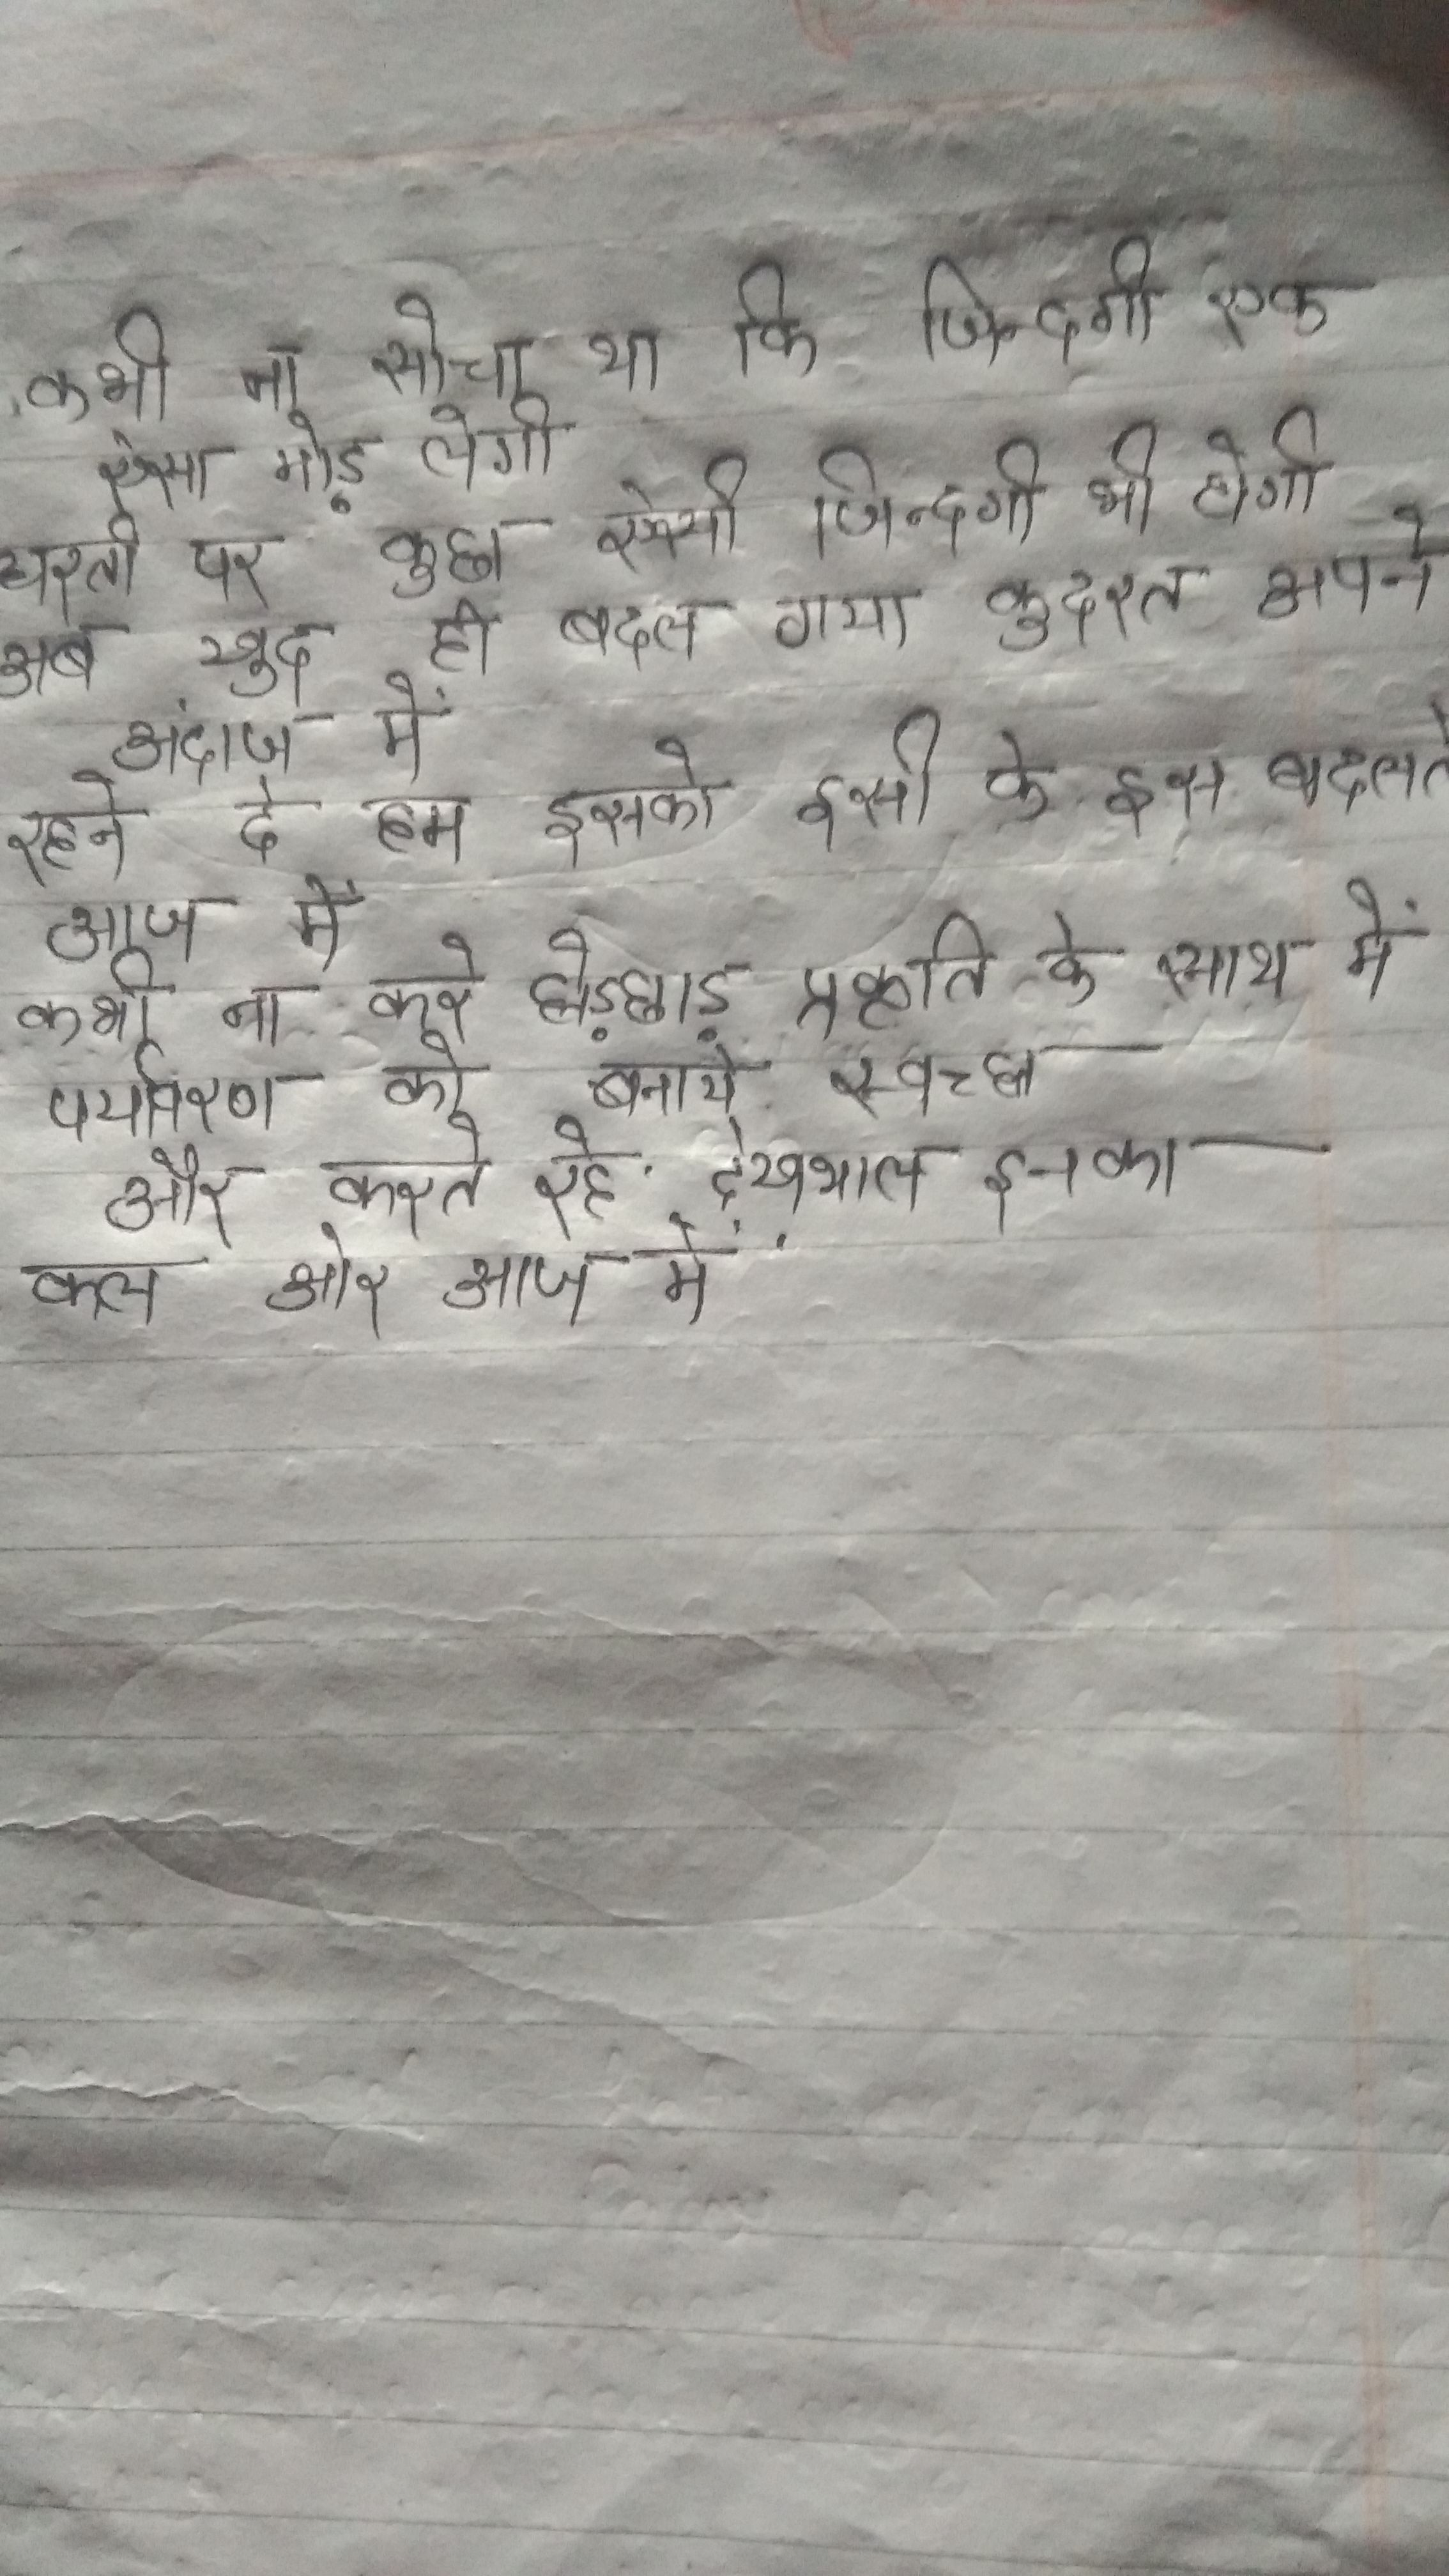 कभी ना सोचा था कि जिन्दगी एक
ऐसा मोड़ लेगी
धरती पर कुछ ऐसी जिन्दगी भी होगी
अब खुद ही बदल गया कुदरत अपने
अंदाज में
रहने दे हम इसको इसी के इस बदलते
आज में
कभी ना करे छेड़छाड़ प्रकृति के साथ में
पर्यावरण को बनाये स्वच्छ
और करते रहे देखभाल इनका
कल ओर आज में